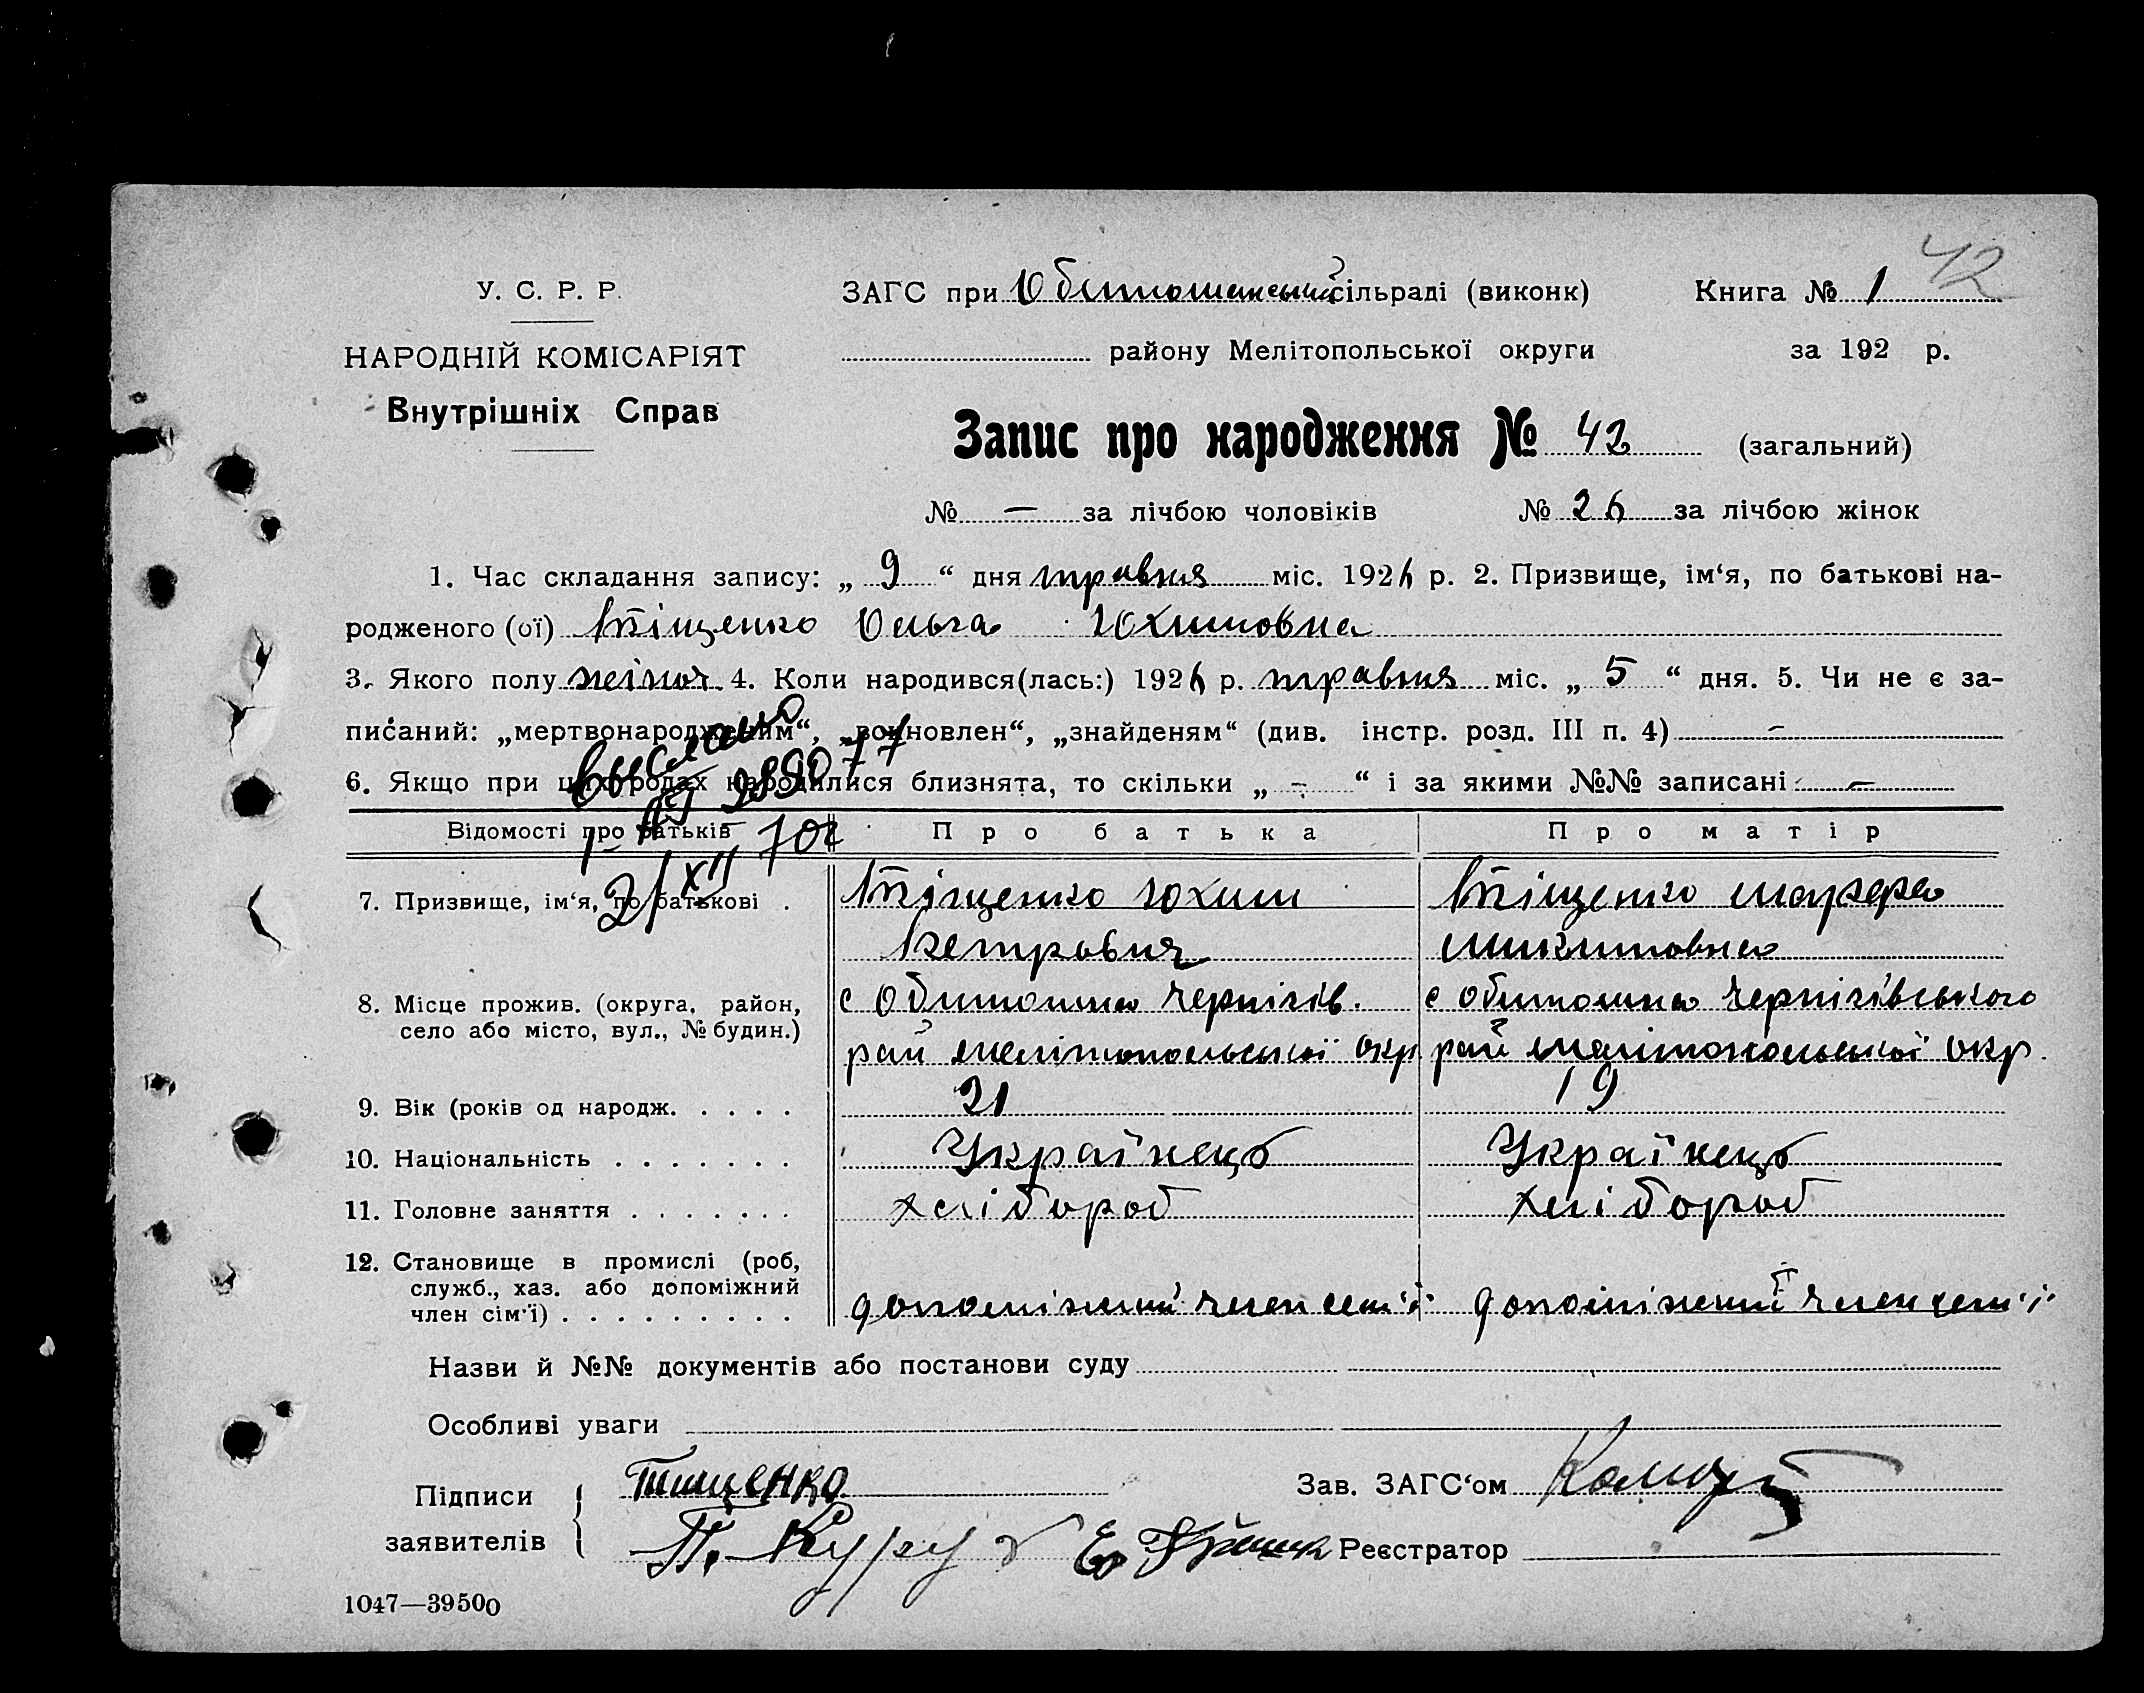 42
У. С. Р. Р.
ЗАГС при Обитошенській сільраді (виконк)
Книга № 1
НАРОДНІЙ КОМІСАРІЯТ
району Мелітопольської округи
за 192 р.
Внутрішніх Справ
Запис про народження № 42 (загальний)
№ — за лічбою чоловіків № 26 за лічбою жінок
1. Час складання запису: „ 9 “ дня травня міс. 1926 р. 2. Призвище, ім‘я, по батькові на-
родженого (ої) Тіщенко Ольга Юхимовна
3. Якого полу жіноч. 4. Коли народився(лась:) 1926 р. травня міс. „ 5 “ дня. 5. Чи не є за-
писаний: „мертвонародженим“, „вображ“, „знайденям“ (див. інстр. розд. III п. 4) —
6. Якщо при цих родах народилися близнята, то скільки „ — “ і за якими №№ записані: —
выслано
Відомості про батьків
Про батька
Про матір
21/XII 70г
7. Призвище, ім‘я, по батькові .
Тіщенко Юхим
Тіщенко Марфа
Петрович
Микитовна
8. Місце прожив. (округа, район,
село або місто, вул., № будин.)
с Обитошна Чернігів.
с Обитошна Чернігівського
рай Мелітопольської окр
рай Мелітопольської окр.
9. Вік (років од народж. . . . .
21
19
10. Національність . . . . . . .
Українець
Українець
11. Головне заняття . . . . . . .
хлібороб
хлібороб
12. Становище в промислі (роб,
служб., хаз. або допоміжний
член сім‘ї) . . . . . . . . .
допоміжний член сем‘ї
допоміжний член сем‘ї
Назви й №№ документів або постанови суду
Особливі уваги
Підписи
заявителів
Тищенко
Зав. ЗАГС‘ом
Реєстратор
1047—39500